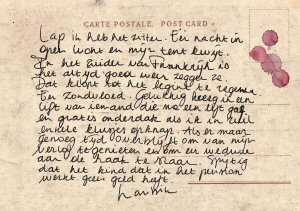 CARTE POSTALE. POST CARD
Lap ik heb het zitter. Een nacht in
open lucht en mijn tent kwijt.
In het zuiden van Frankrijk is
het altijd goed weer zeggen ze.
Dat klopt tot het begint te regenen
Een zondvloed. Gelukkig kreeg ik een
lift van iemand die me een lift gaf
en gratis onderdak als ik in ruil
enkele klusjes opknap. Als er maar
genoeg tijd overblijft om van mijn
verlof te genieten en om er weduwe
aan de haak te slaan. Spijtig
dat het kind dat in het pension
werkt geen geld heeft